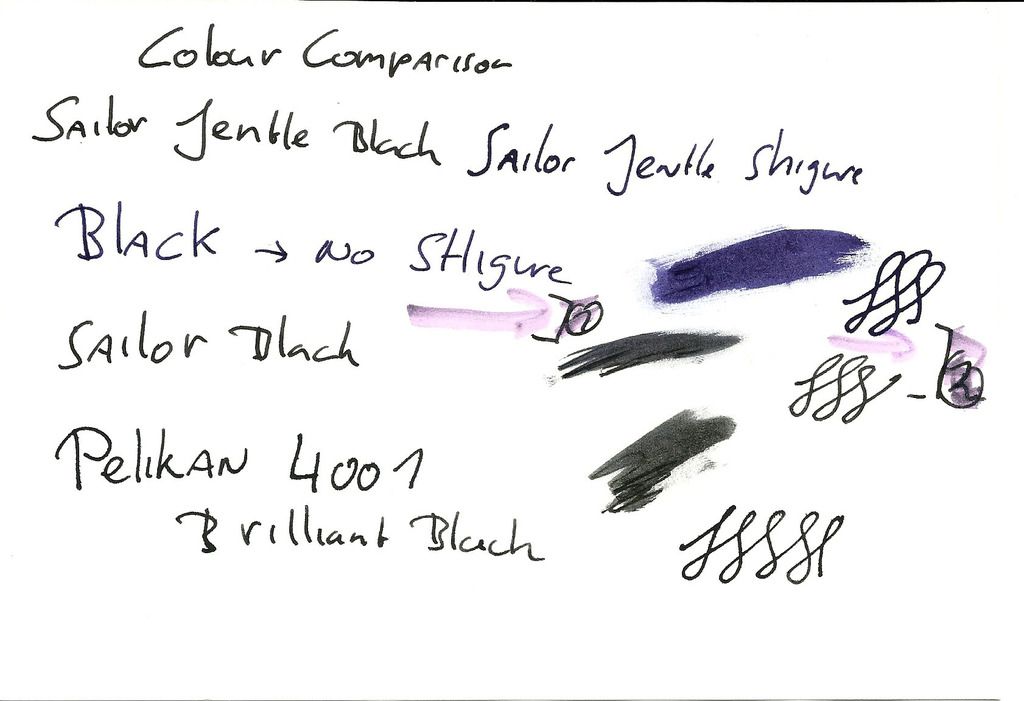 Colour Comparison
Sailor Jentle Black Sailor Jentle Shigure
Black → No SHigure
Sailor Black
Pelikan 4001
Brilliant Black